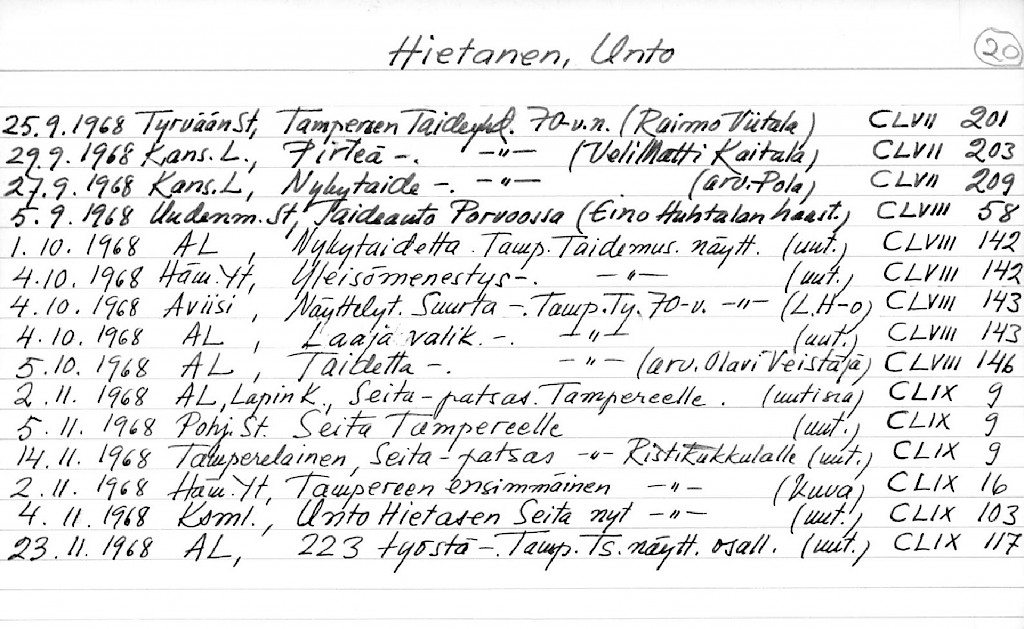 Hietanen, Unto
20
25.9.1968 Tyrvään St, Tampereen Taideyhd. 70-v.n. (Raimo Viitala) CLVII 201
29.9.1968 Kans.L., Pirteä -. -"- (VeliMatti Kaitala) CLVII 203
27.9.1968 Kans.L, Nykytaide -. -"- (arv. Pola) CLVII 209
5.9.1968 Uudenm.St, Taideauto Porvoossa (Eino Huhtalan haast.) CLVIII 58
1.10.1968 AL, Nykytaidetta. Tamp. Taidemus. näytt. (uut.) CLVIII 142
4.10.1968 Häm.Yt, Yleisömenestys -. -"- (uut.) CLVIII 142
4.10.1968 Aviisi, Näyttelyt. Suurta -. Tamp.Ty. 70-v. -"- (L.H-o) CLVIII 143
4.10.1968 AL, Laaja valik. -. -"- (uut.) CLVIII 143
5.10.1968 AL, Taidetta -. -"- (arv. Olavi Veistäjä) CLVIII 146
2.11.1968 AL, Lapin K., Seita-patsas. Tampereelle. (uutisia) CLIX 9
5.11.1968 Pohj.St. Seita Tampereelle (uut.) CLIX 9
14.11.1968 Tamperelainen, Seita-patsas -"- Ristikukkulalle (uut.) CLIX 9
2.11.1968 Häm.Yt, Tampereen ensimmäinen -"- (kuva) CLIX 16
4.11.1968 Ksml., Unto Hietasen Seita nyt -"- (uut.) CLIX 103
23.11.1968 AL, 223 työstä -. Tamp. Ts. näytt. osall. (uut.) CLIX 117